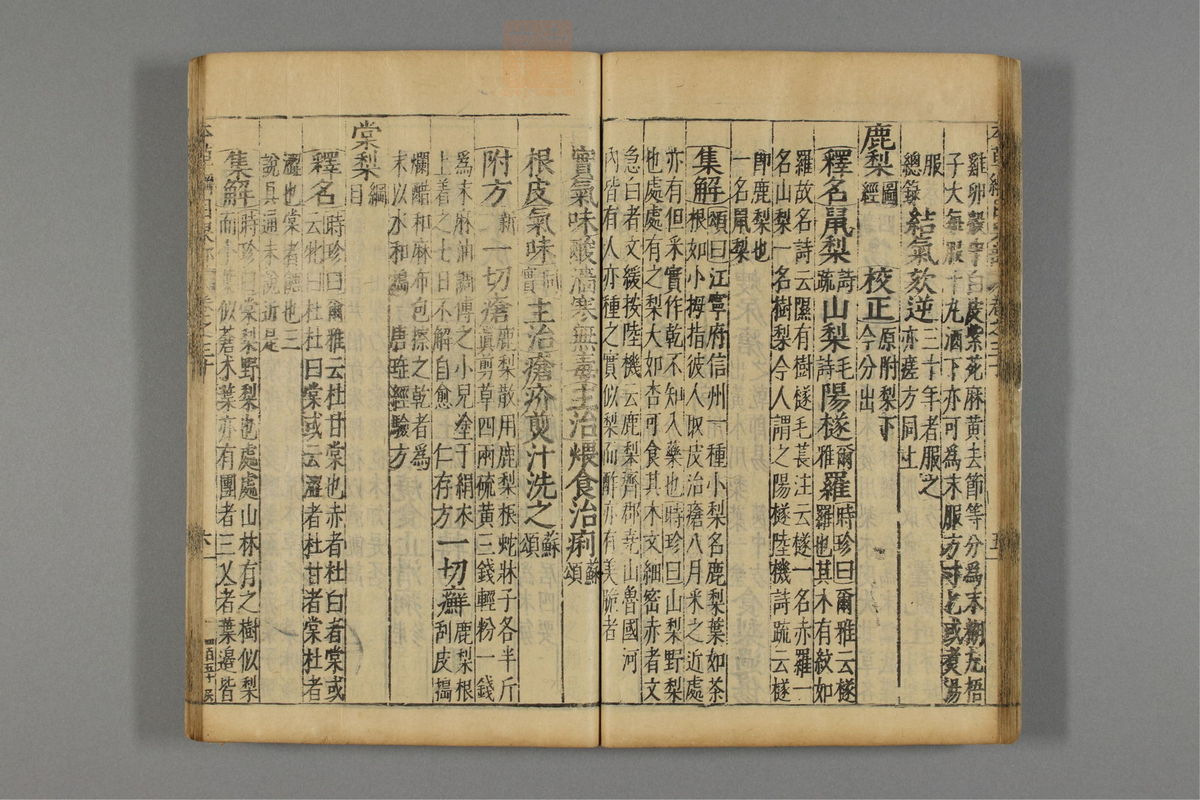 雞卵殼中白皮紫菀麻黃去節等分為末糊丸梧
子大每服十九酒下亦可為末服方寸匕或煑湯
服
總錄結氣欬逆三十年者服之
亦瘥方同上
鹿梨圖經校正原附梨下
今分出
釋名鼠梨詩疏山梨毛詩陽檖爾雅羅時珍曰爾雅云檖
羅也其木有紋如
羅故名詩云隰有樹檖毛萇注云檖一名赤羅一
名山梨一名樹梨今人謂之陽檖陸機詩疏云檖
即鹿梨也
一名鼠梨
集解頌曰江寧府信州一種小梨名鹿梨葉如茶
根如小拇指彼人取皮治瘡八月采之近處
亦有但采實作乾不知入藥也時珍曰山梨野梨
也處處有之梨大如杏可食其木文細密赤者文
急白者文緩按陸機云鹿梨齊郡堯山魯國河
內皆有人亦種之實似梨而酢亦有美脆者
實氣味酸濇寒無毒主治煨食治痢蘇頌
根皮氣味同實主治瘡疥煎汁洗之蘇頌
附方新一切瘡鹿梨散用鹿梨根蛇牀子各半斤
真剪草四兩硫黃三錢輕粉一錢
為末麻油調傅之小兒塗于絹衣
上着之七日不解自愈 仁存方一切癬鹿梨根
刮皮搗
爛醋和麻布包擦之乾者為
末以水和搗 唐瑤經驗方
棠梨綱目
釋名時珍曰爾雅云杜甘棠也赤者杜白者棠或
云牝曰杜牡曰棠或云澀者杜甘者棠杜者
澀也棠者餹也三
說俱通末說近是
集解時珍曰棠梨野梨也處處山林有之樹似梨
而小葉似蒼木葉亦有團者三叉者葉邊皆